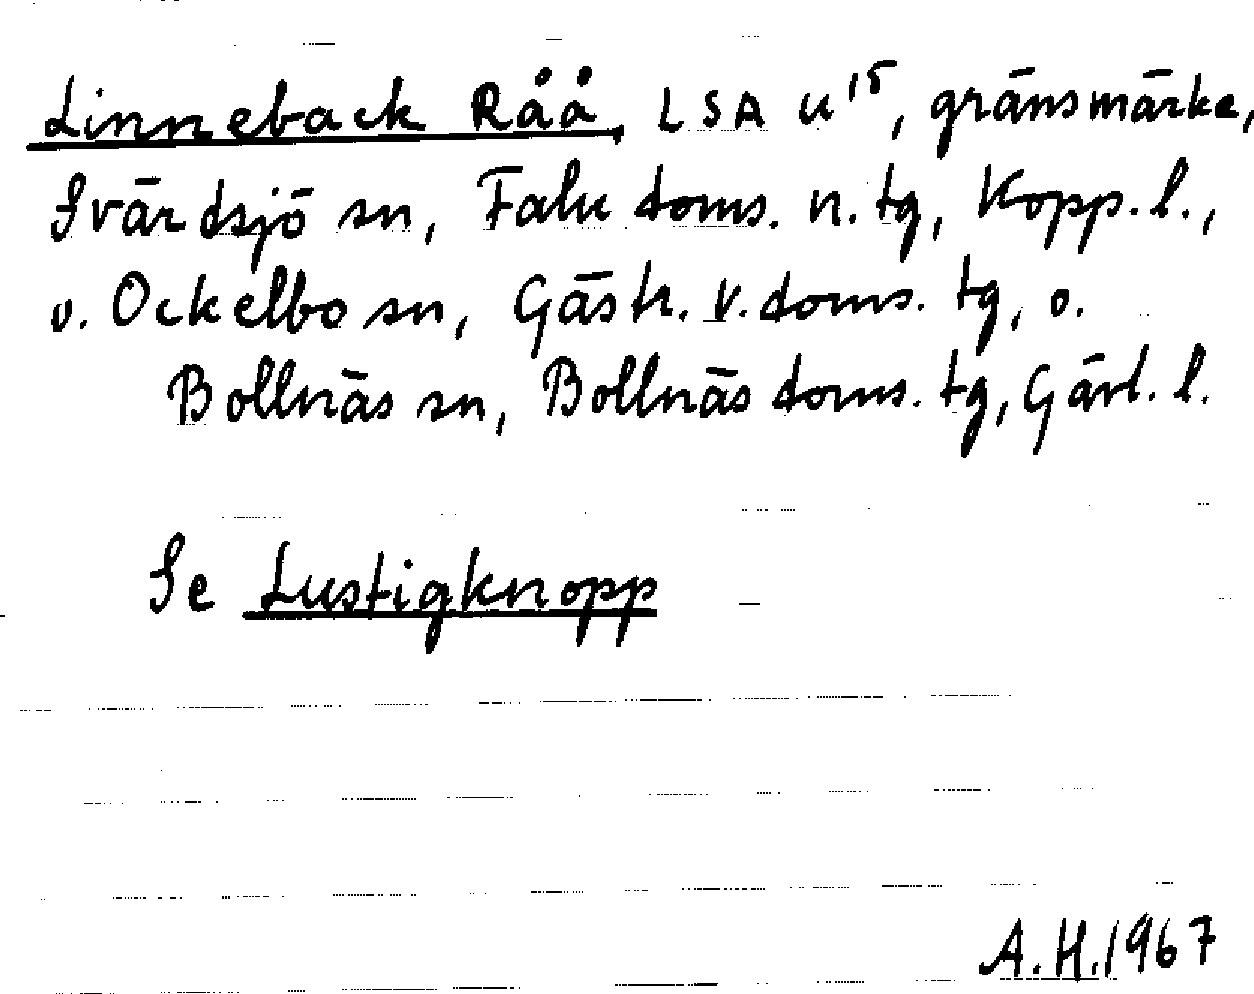 Linneback Råå, LSA U¹⁵, gränsmärke,
Svärdsjö sn, Falu doms. n. tg, Kopp. l.,
o. Ockelbo sn, Gästr. v. doms. tg, o.
Bollnäs sn, Bollnäs doms. tg, Gävl. l.
Se Lustigknopp
A.H. 1967